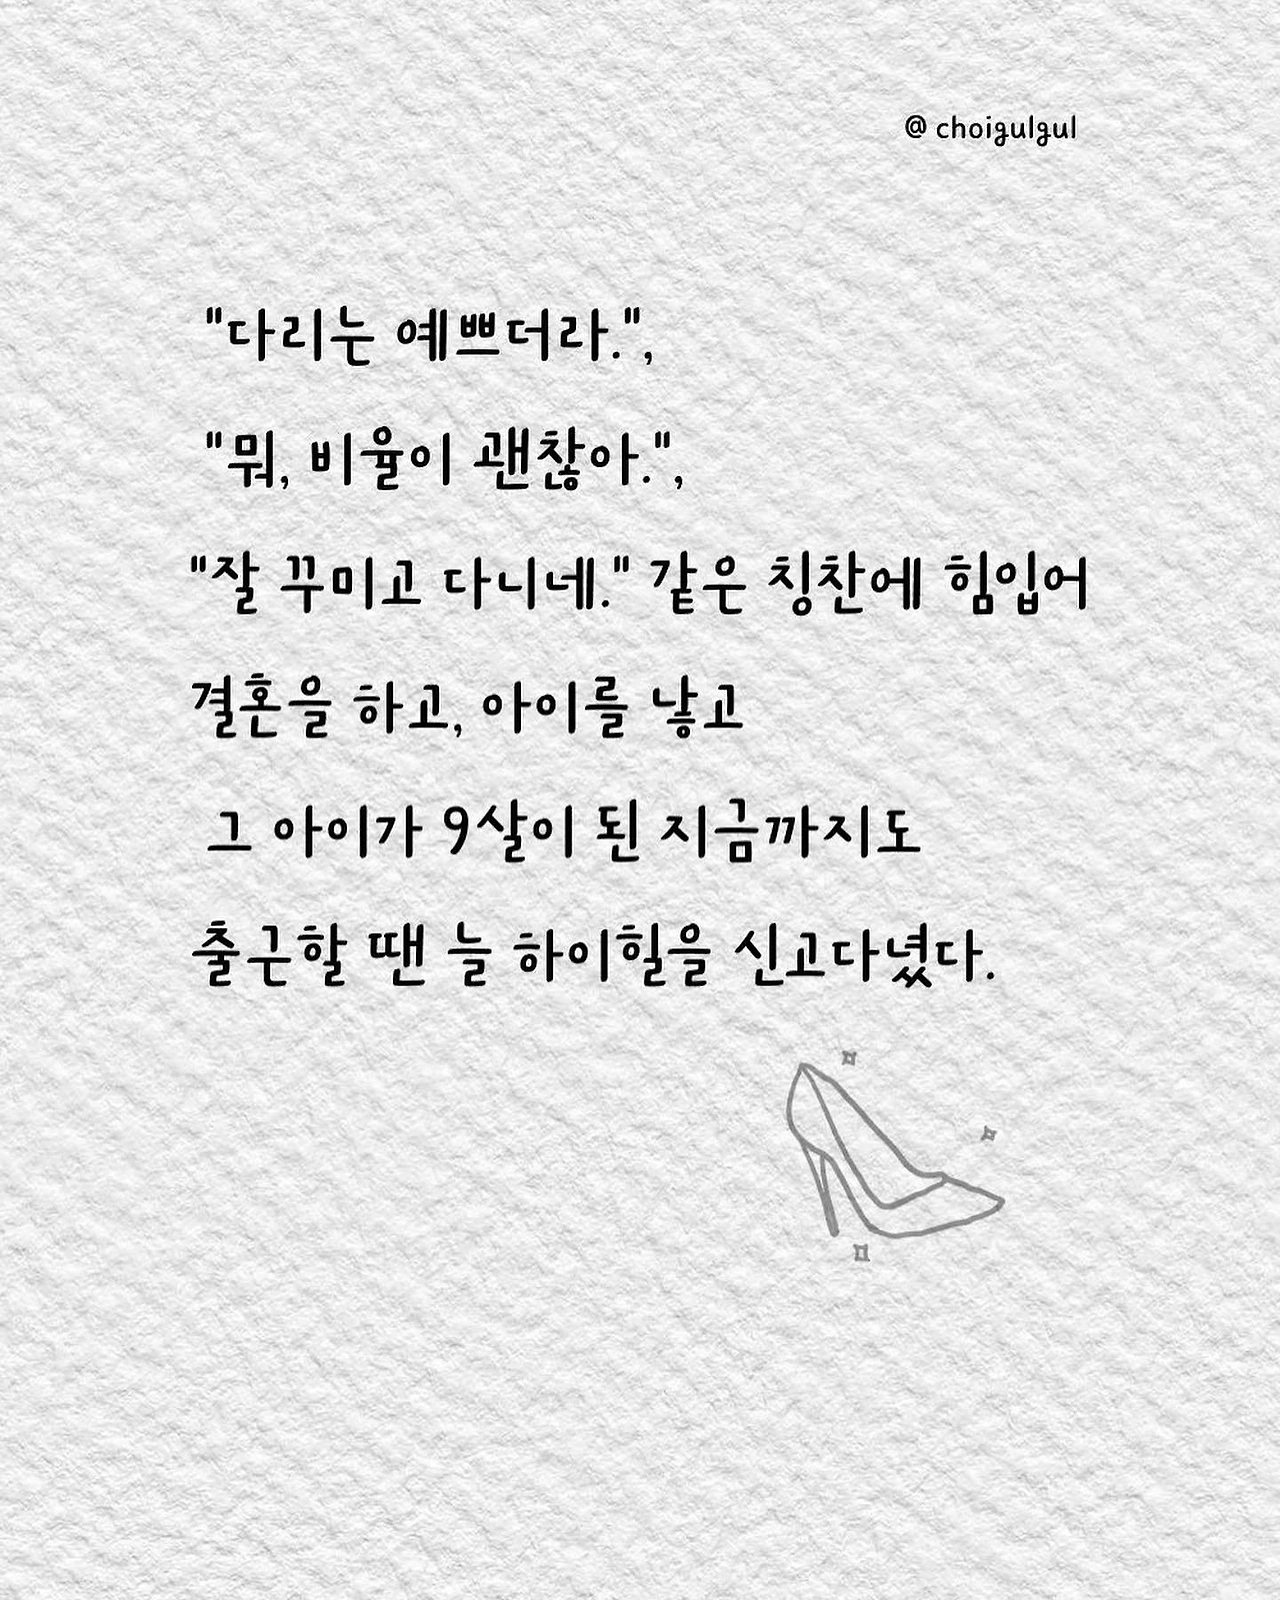 @ choigulgul
"다리는 예쁘더라.",
"뭐, 비율이 괜찮아.",
"잘 꾸미고 다니네." 같은 칭찬에 힘입어
결혼을 하고, 아이를 낳고
그 아이가 9살이 된 지금까지도
출근할 땐 늘 하이힐을 신고다녔다.